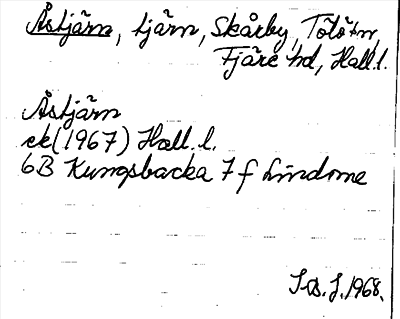 Åstjärn, tjärn, Skårby, Tölö sn,
Fjäre hd, Hall.l.
Åstjärn
ek (1967) Hall.l.
6B Kungsbacka 7 f Lindome
1968.